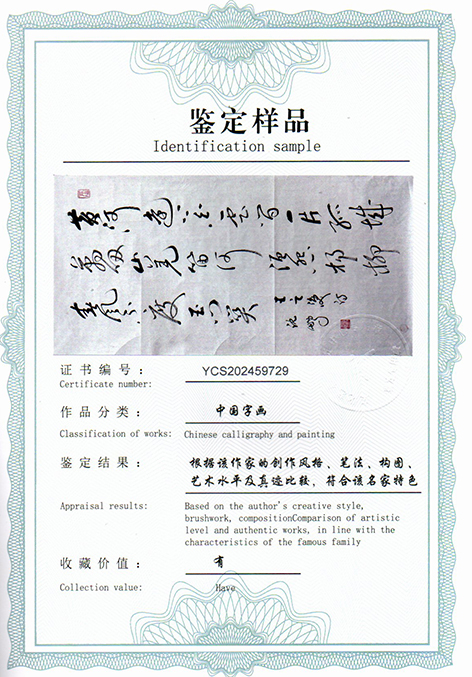 鉴定样品
Identification sample
黄河遠上白雲間一片孤城
萬仞山羌笛何須怨楊柳
春風不度玉门关 王之涣诗
沈鹏
证书编号： YCS202459729
Certificate number:
作品分类： 中国字画
Classification of works: Chinese calligraphy and painting
鉴定结果： 根据该作家的创作风格、笔法、构图、
艺术水平及真迹比较，符合该名家特色
Appraisal results: Based on the author's creative style,
brushwork, compositionComparison of artistic
level and authentic works, in line with the
characteristics of the famous family
收藏价值： 有
Collection value: Have